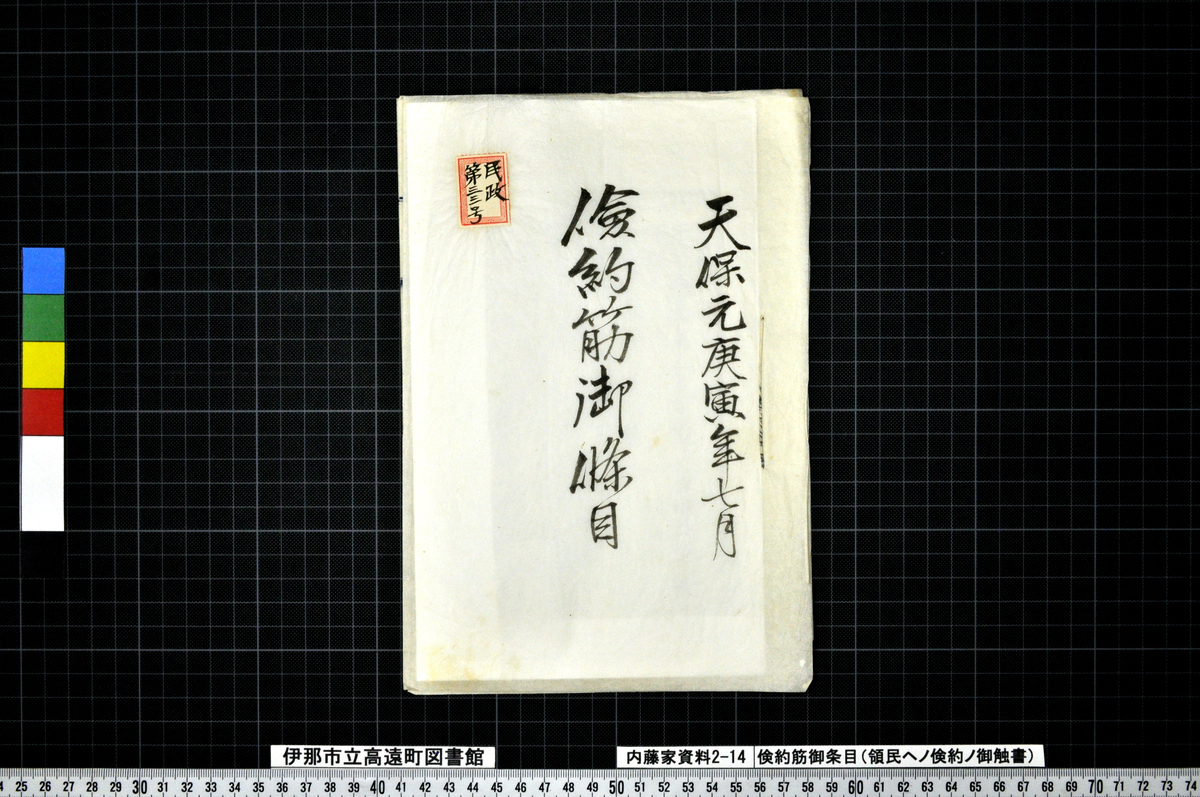 天保元庚寅年七月
儉約筋御條目
民政
第三三号
伊那市立高遠町図書館
内藤家資料2-14 倹約筋御条目(領民ヘノ倹約ノ御触書)
25 26 27 28 29 30 31 32 33 34 35 36 37 38 39 40 41 42 43 44 45 46 47 48 49 50 51 52 53 54 55 56 57 58 59 60 61 62 63 64 65 66 67 68 69 70 71 72 73